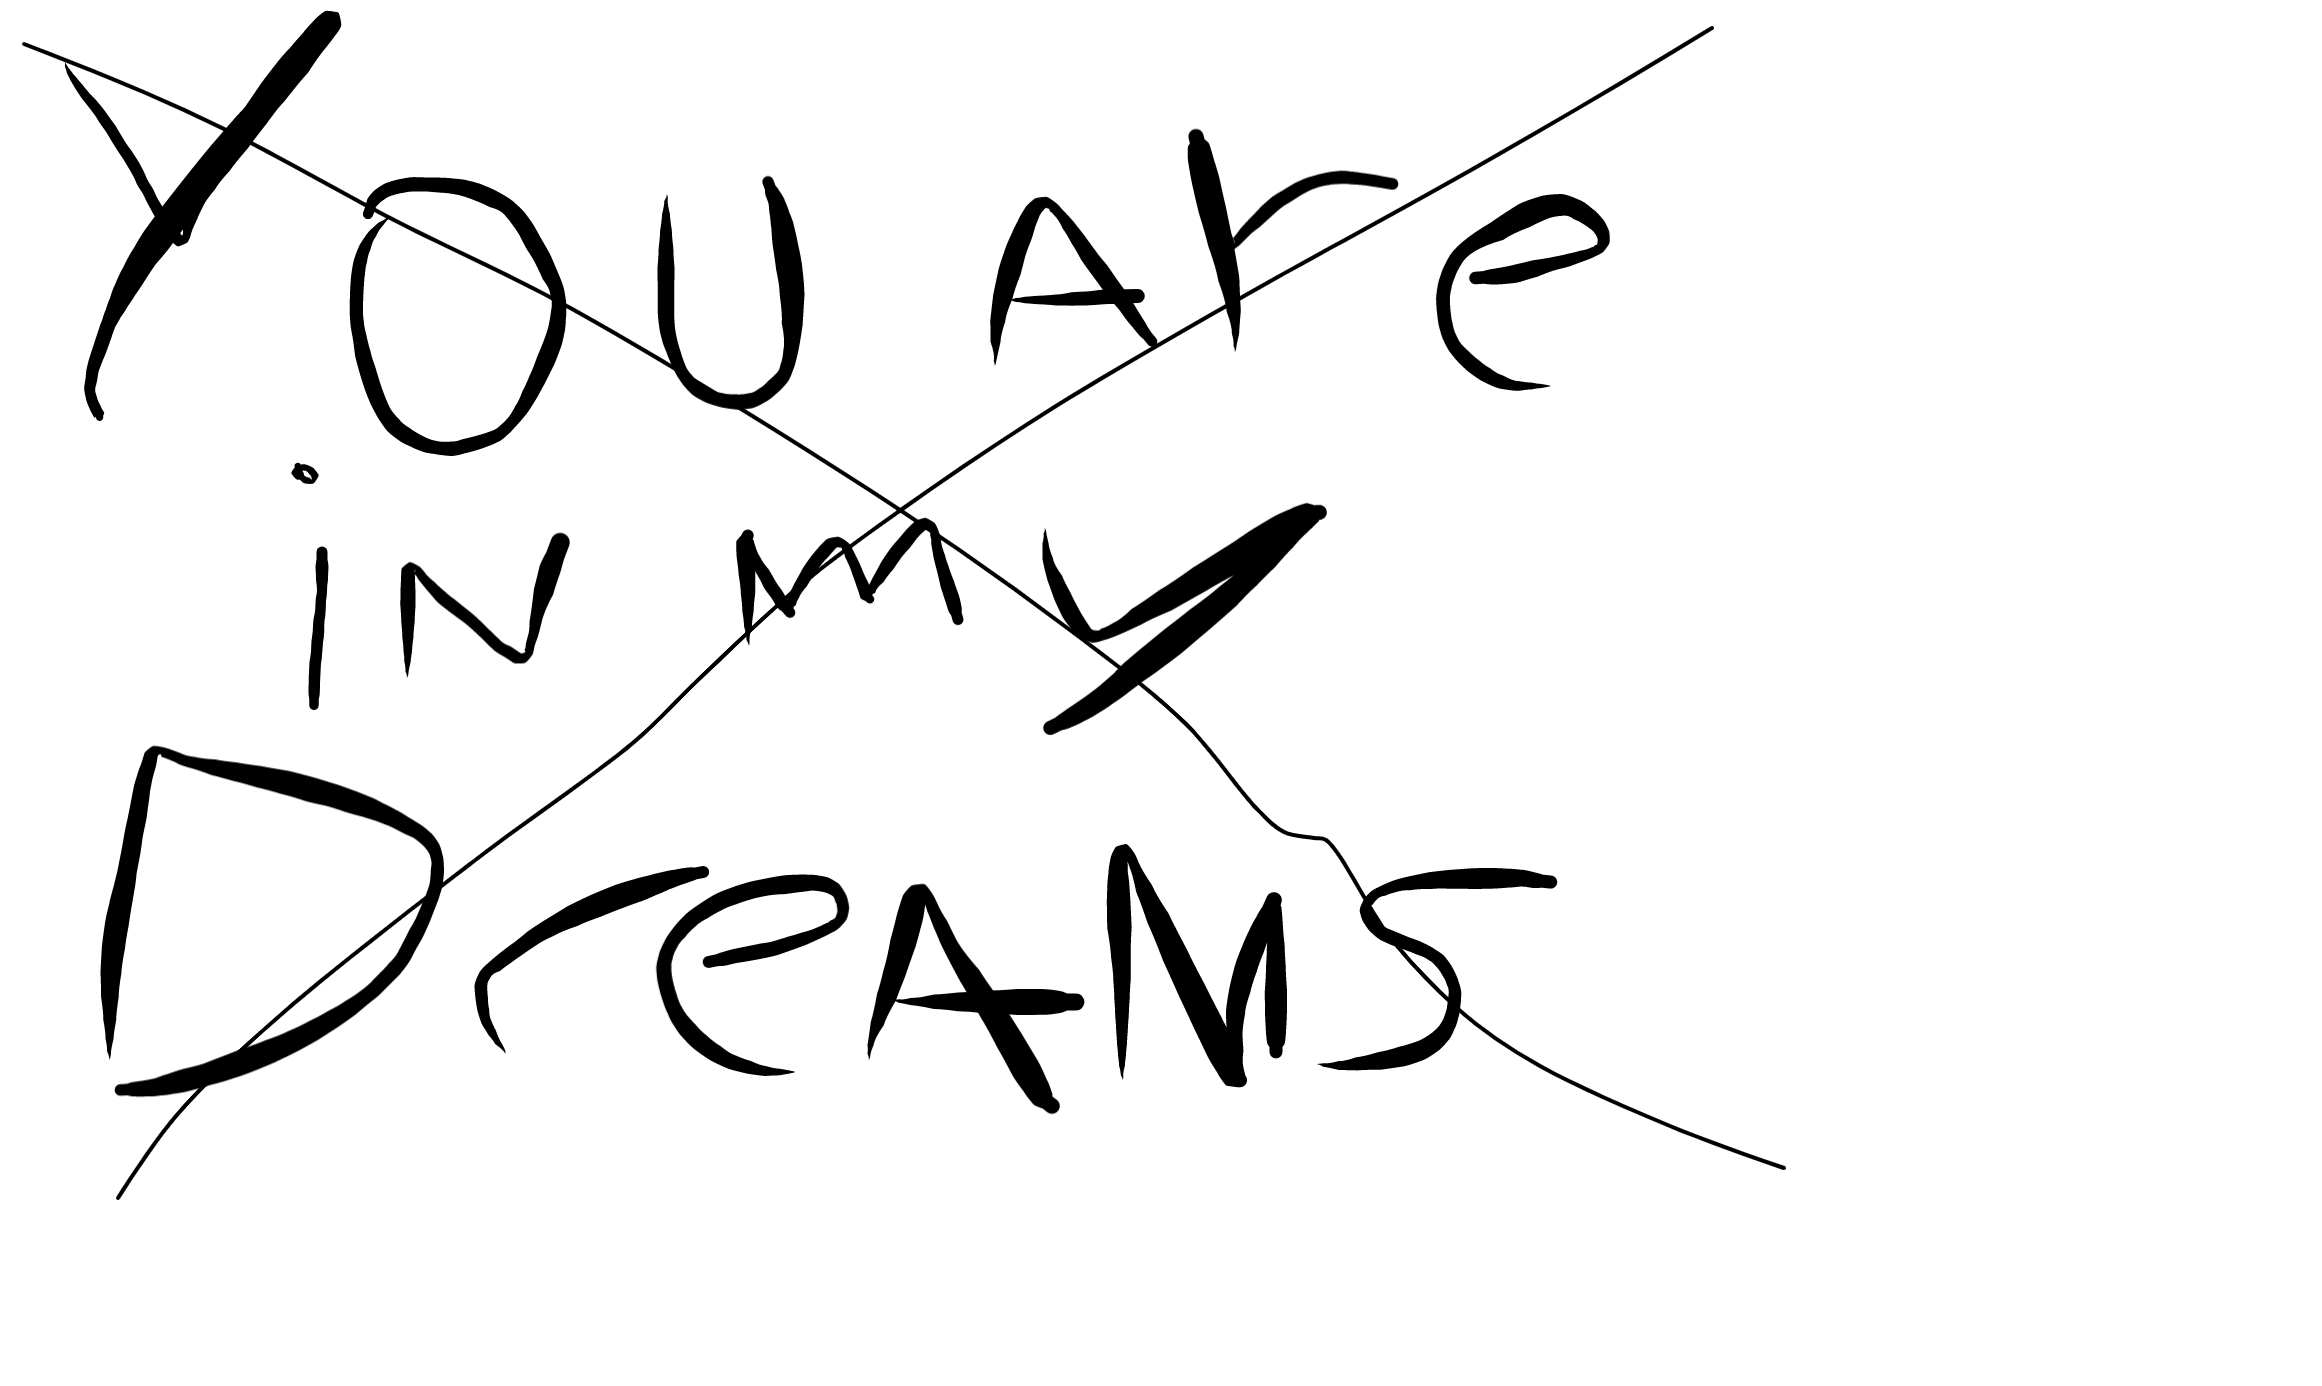 You Are
iN my
DreAMS